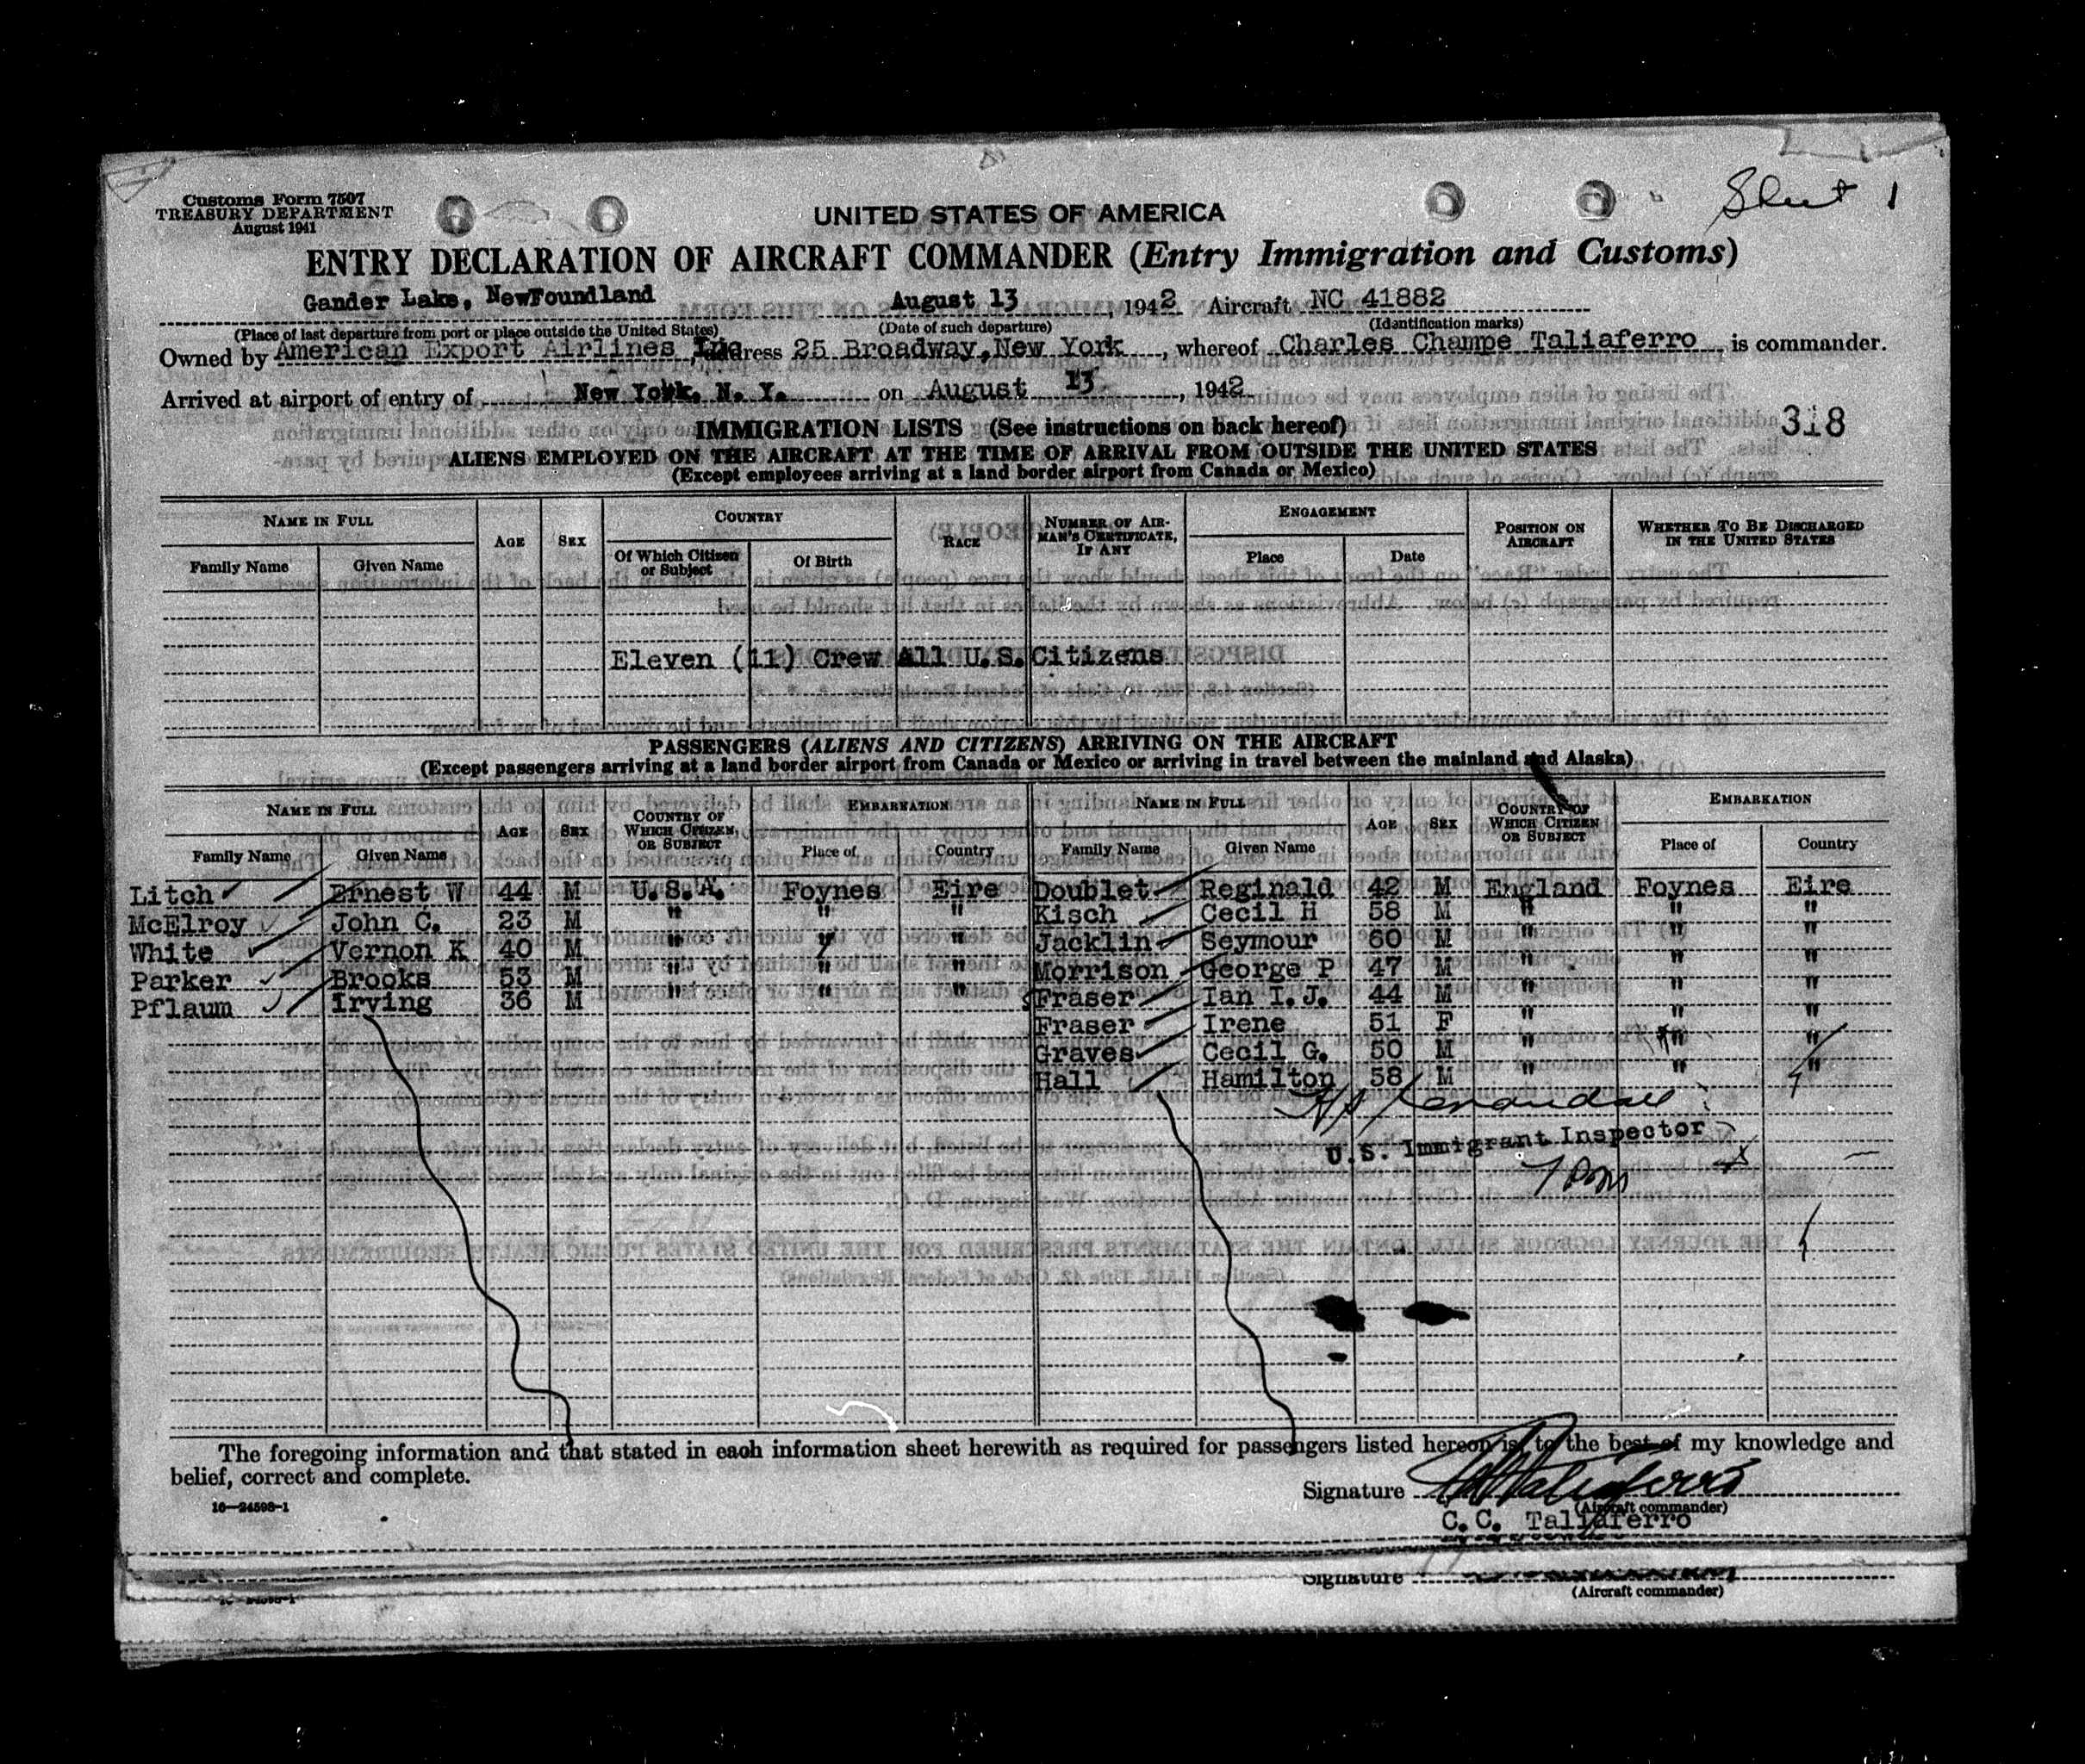 Customs Form 7507
TREASURY DEPARTMENT
August 1941
Sheet 1
UNITED STATES OF AMERICA
ENTRY DECLARATION OF AIRCRAFT COMMANDER (Entry Immigration and Customs)
Gander Lake, NewFoundland August 13, 1942 Aircraft NC 41882
(Place of last departure from port or place outside the United States) (Date of such departure) (Identification marks)
Owned by American Export Airlines Inc Address 25 Broadway, New York, whereof Charles Champe Taliaferro, is commander.
Arrived at airport of entry of New York, N. Y. on August 13, 1942
318
IMMIGRATION LISTS (See instructions on back hereof)
ALIENS EMPLOYED ON THE AIRCRAFT AT THE TIME OF ARRIVAL FROM OUTSIDE THE UNITED STATES
(Except employees arriving at a land border airport from Canada or Mexico)
NAME IN FULL AGE SEX COUNTRY RACE NUMBER OF AIRMAN'S CERTIFICATE, IF ANY ENGAGEMENT POSITION ON AIRCRAFT WHETHER TO BE DISCHARGED IN THE UNITED STATES
Family Name Given Name Of Which Citizen or Subject Of Birth Place Date
Eleven (11) Crew All U.S. Citizens
PASSENGERS (ALIENS AND CITIZENS) ARRIVING ON THE AIRCRAFT
(Except passengers arriving at a land border airport from Canada or Mexico or arriving in travel between the mainland and Alaska)
NAME IN FULL AGE SEX COUNTRY OF WHICH CITIZEN OR SUBJECT EMBARKATION NAME IN FULL AGE SEX COUNTRY OF WHICH CITIZEN OR SUBJECT EMBARKATION
Family Name Given Name Place of Country Family Name Given Name Place of Country
Litch Ernest W 44 M U.S.A. Foynes Eire Doublet Reginald 42 M England Foynes Eire
McElroy John C. 23 M " " " Kisch Cecil H 58 M " " "
White Vernon K 40 M " " " Jacklin Seymour 60 M " " "
Parker Brooks 53 M " " " Morrison George P 47 M " " "
Pflaum Irving 36 M " " " Fraser Ian I.J. 44 M " " "
Fraser Irene 51 F " " "
Graves Cecil G. 50 M " " "
Hall Hamilton 58 M " " "
U.S. Immigrant Inspector
The foregoing information and that stated in each information sheet herewith as required for passengers listed hereon is, to the best of my knowledge and
belief, correct and complete.
Signature C C Taliaferro
16—24598-1
(Aircraft commander)
C.C. Taliaferro
Signature
(Aircraft commander)